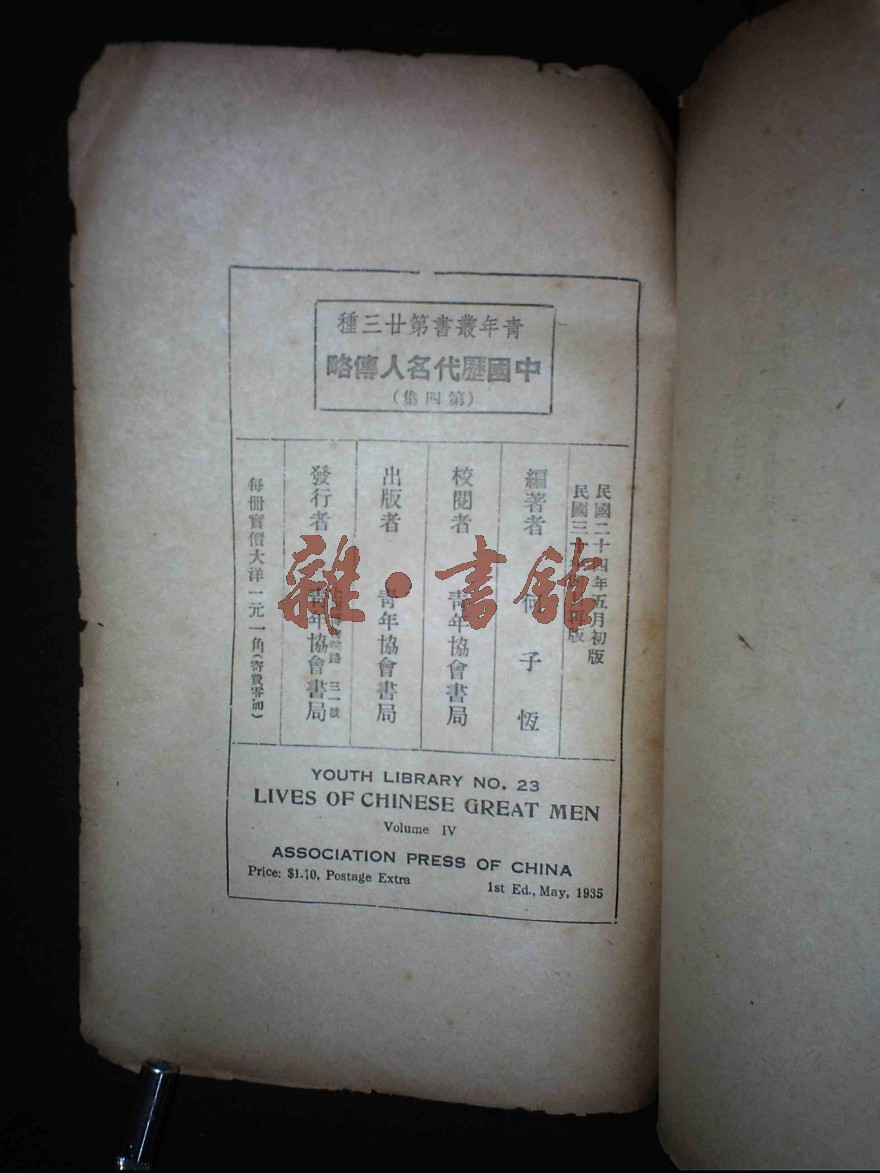 青年叢書第廿三種
中國歷代名人傳略
(第四集)
民國二十四年五月初版
民國三十 版
編著者 何子恆
校閱者 青年協會書局
出版者 青年協會書局
發行者 青年協會書局
路一三一號
每冊實價大洋一元一角(寄費另加)
雜·書館
YOUTH LIBRARY NO. 23
LIVES OF CHINESE GREAT MEN
Volume IV
ASSOCIATION PRESS OF CHINA
Price: $1.10, Postage Extra
1st Ed., May, 1935